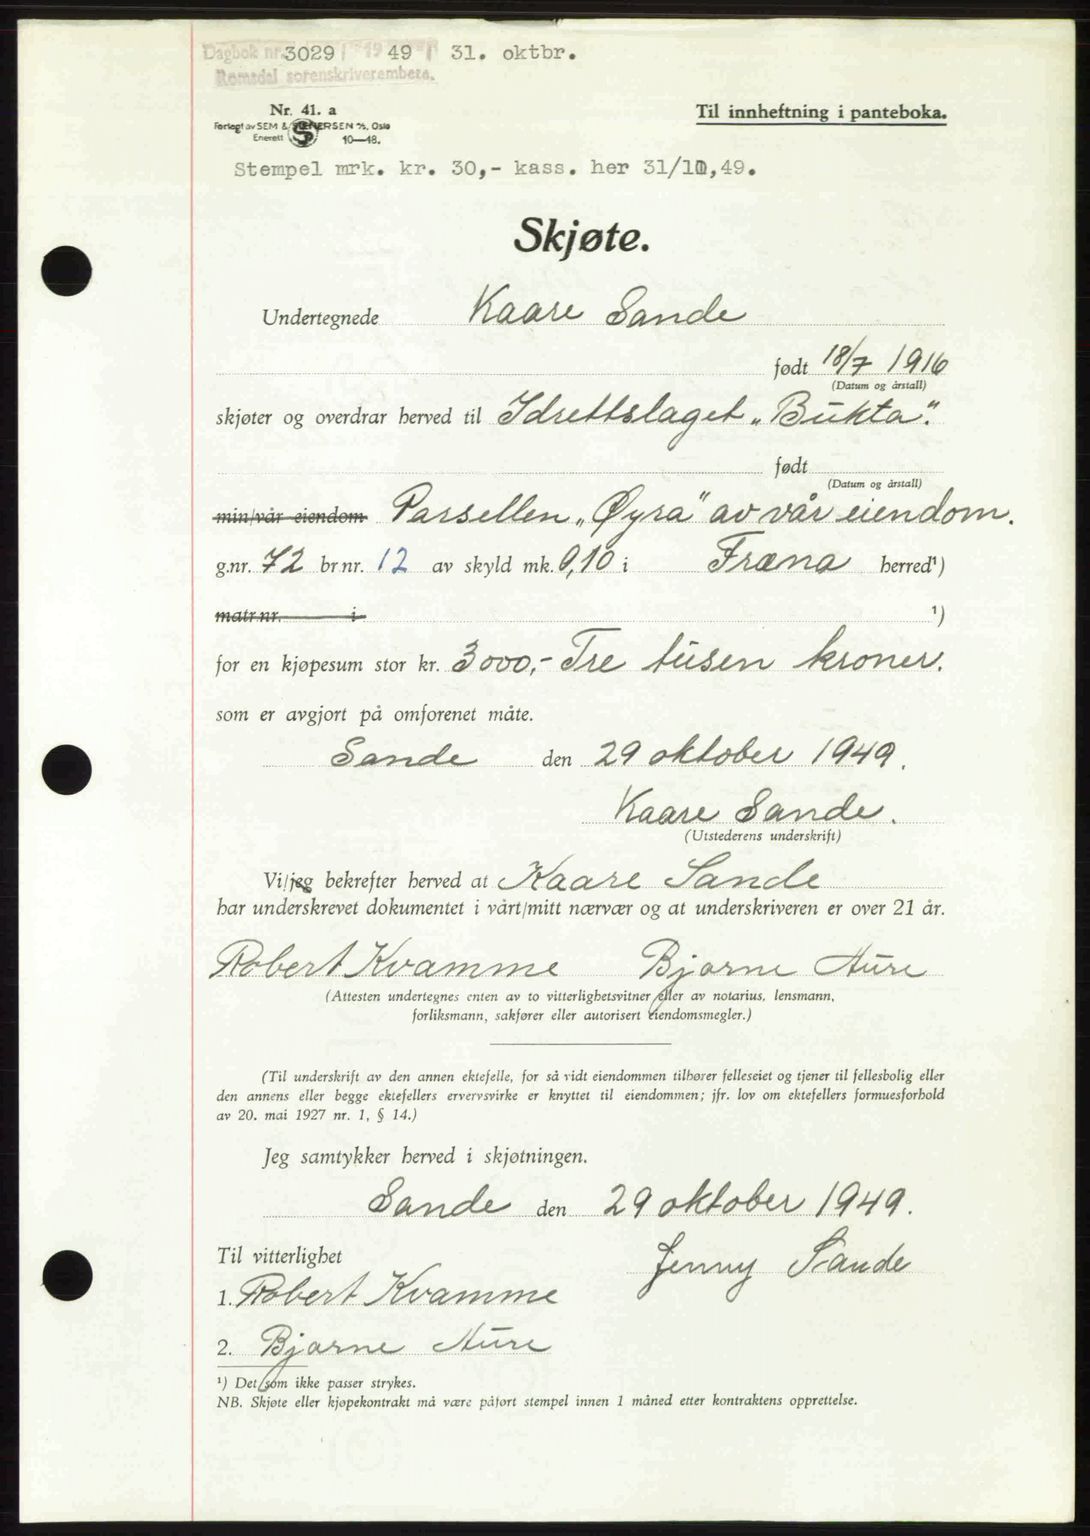 Dagbok nr. 3029 / 19 49 / 31. oktbr.
Romsdal sorenskriverembete.
Nr. 41. a
Til innheftning i panteboka.
Forlagt av SEM & STENERSEN A/S, Oslo
Enerett 10—48.
Stempel mrk. kr. 30,- kass. her 31/10,49.
Skjøte.
Undertegnede Kaare Sande
født 18/7 1916
(Datum og årstall)
skjøter og overdrar herved til Idrettslaget „Bukta".
født
(Datum og årstall)
min/vår eiendom Parsellen „Øyra" av vår eiendom.
g.nr. 72 br nr. 12 av skyld mk. 0,10 i Fræna herred¹)
matr.nr. i ¹)
for en kjøpesum stor kr. 3000,- Tre tusen kroner.
som er avgjort på omforenet måte.
Sande den 29 oktober 1949.
Kaare Sande.
(Utstederens underskrift)
Vi/jeg bekrefter herved at Kaare Sande
har underskrevet dokumentet i vårt/mitt nærvær og at underskriveren er over 21 år.
Robert Kvamme Bjarne Aure
(Attesten undertegnes enten av to vitterlighetsvitner eller av notarius, lensmann,
forliksmann, sakfører eller autorisert eiendomsmegler.)
(Til underskrift av den annen ektefelle, for så vidt eiendommen tilhører felleseiet og tjener til fellesbolig eller
den annens eller begge ektefellers ervervsvirke er knyttet til eiendommen; jfr. lov om ektefellers formuesforhold
av 20. mai 1927 nr. 1, § 14.)
Jeg samtykker herved i skjøtningen.
Sande den 29 oktober 1949.
Til vitterlighet Jenny Sande
1. Robert Kvamme
2. Bjarne Aure
¹) Det som ikke passer strykes.
NB. Skjøte eller kjøpekontrakt må være påført stempel innen 1 måned etter kontraktens opprettelse.